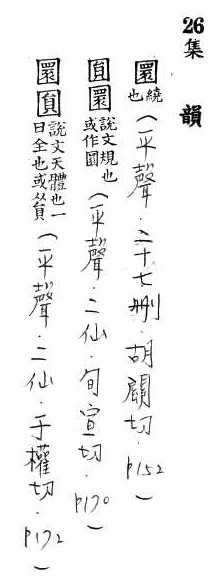 26集 韻
圜繞也（平聲．二十七刪．胡關切．p152）
圜說文規也或作圜（平聲．二仙．旬宣切．p170）
圜圓說文天體也一曰全也或从員（平聲．二仙．于權切．p172）